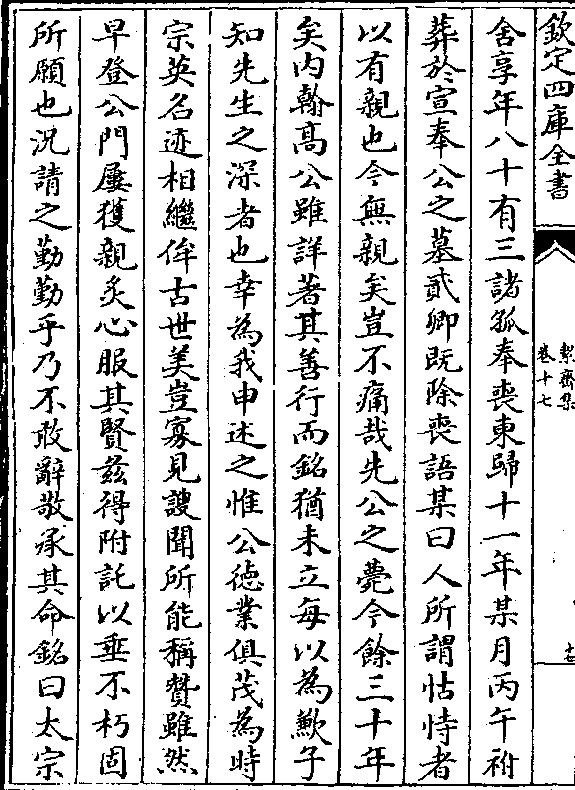 欽定四庫全書
絜齋集
卷十七
舍享年八十有三諸孤奉喪東歸十一年某月丙午祔
葬於宣奉公之墓貳卿既除喪語某曰人所謂怙恃者
以有親也今無親矣豈不痛哉先公之薨今餘三十年
矣内翰高公雖詳著其善行而銘猶未立每以為歉子
知先生之深者也幸為我申述之惟公徳業俱茂為時
宗英名迹相繼侔古世美豈寡見謏聞所能稱贊雖然
早登公門屢獲親炙心服其賢兹得附託以垂不朽固
所願也況請之勤勤乎乃不敢辭敬承其命銘曰太宗